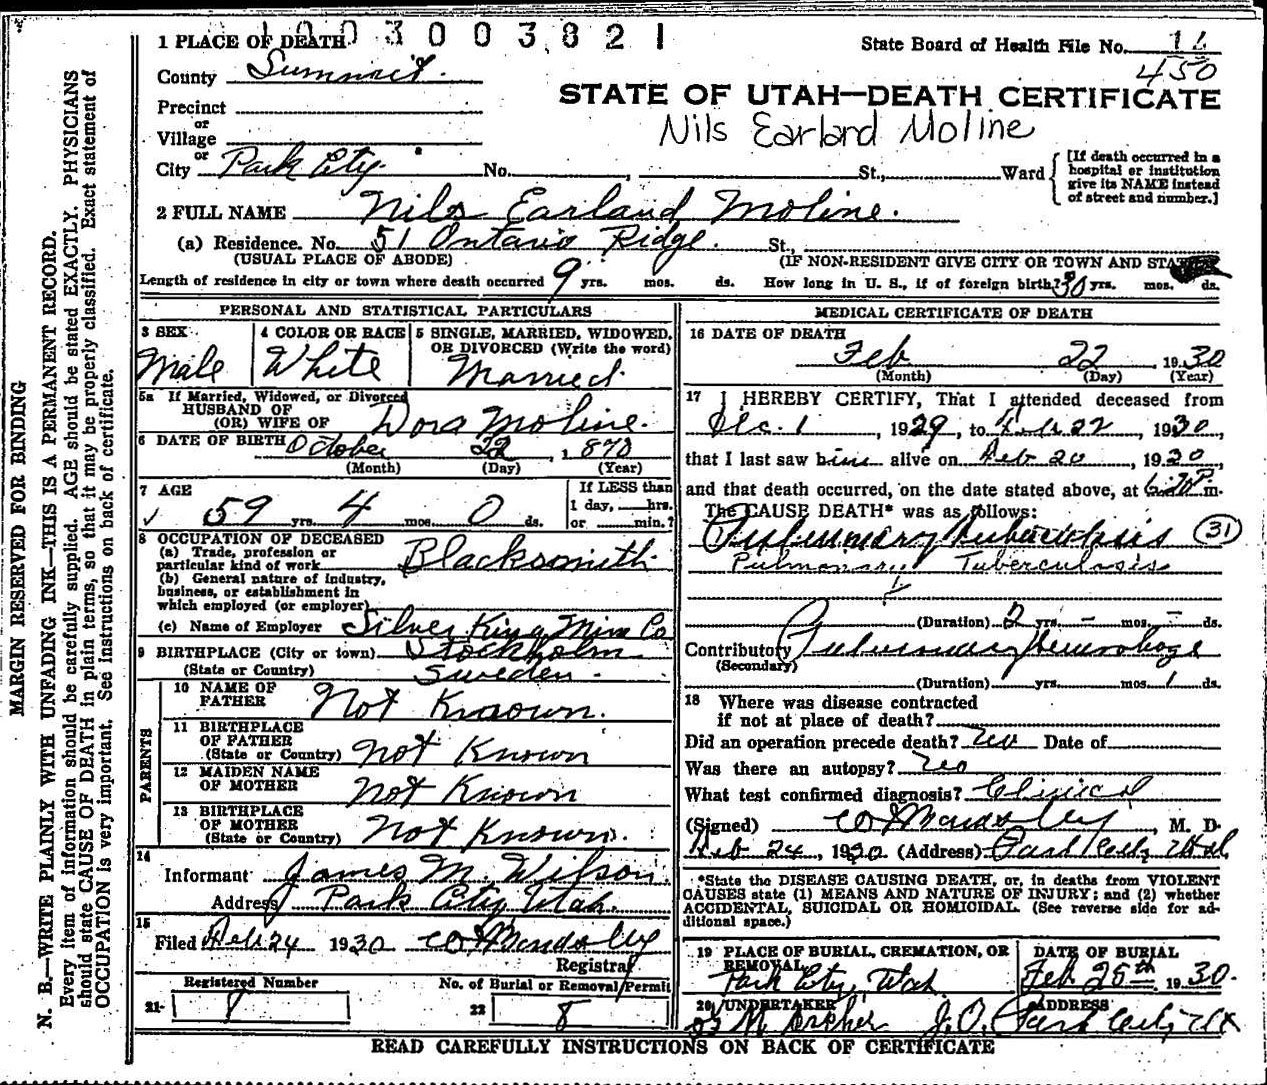 1003003821
1 PLACE OF DEATH
State Board of Health File No. 12
450
County Summit.
STATE OF UTAH—DEATH CERTIFICATE
Precinct
Nils Earland Moline
or
Village
or
City Park City No. , St., Ward
[If death occurred in a hospital or institution give its NAME instead of street and number.]
2 FULL NAME Nils Earland Moline.
(a) Residence. No. 51 Ontario Ridge. St.,
(USUAL PLACE OF ABODE) (IF NON-RESIDENT GIVE CITY OR TOWN AND
Length of residence in city or town where death occurred 9 yrs. mos. ds. How long in U. S., if of foreign birth? 30 yrs. mos. ds.
PERSONAL AND STATISTICAL PARTICULARS
3 SEX
Male
4 COLOR OR RACE
White
5 SINGLE, MARRIED, WIDOWED, OR DIVORCED (Write the word)
Married.
5a If Married, Widowed, or Divorced
HUSBAND OF
(OR) WIFE OF Dora Moline.
6 DATE OF BIRTH October 22, 1870
(Month) (Day) (Year)
7 AGE
59 yrs. 4 mos. 0 ds.
If LESS than
1 day, hrs.
or min.?
8 OCCUPATION OF DECEASED
(a) Trade, profession or
particular kind of work Blacksmith
(b) General nature of industry,
business, or establishment in
which employed (or employer)
(c) Name of Employer Silver King Mine Co
9 BIRTHPLACE (City or town) Stockholm.
(State or Country) Sweden.
PARENTS
10 NAME OF
FATHER Not Knaown.
11 BIRTHPLACE
OF FATHER
(State or Country) Not Known
12 MAIDEN NAME
OF MOTHER Not Known
13 BIRTHPLACE
OF MOTHER
(State or Country) Not Known.
14
Informant James M. Wilson.
Address Park City Utah.
15
Filed Feb 24 1930
Registrar
Registered Number
21-
8
No. of Burial or Removal Permit
22
8
MEDICAL CERTIFICATE OF DEATH
16 DATE OF DEATH
Feb 22 1930
(Month) (Day) (Year)
17 I HEREBY CERTIFY, That I attended deceased from
Dec. 1, 1929, to Feb 22, 1930,
that I last saw him alive on Feb 20, 1930,
and that death occurred, on the date stated above, at m.
The CAUSE DEATH* was as follows:
Pulmonary Tuberculosis 31
Pulmonary Tuberculosis
(Duration) 2 yrs. - mos. - ds.
Contributory Pulmonary Hemorhage
(Secondary)
(Duration) yrs. mos. 1 ds.
18 Where was disease contracted
if not at place of death?
Did an operation precede death? no Date of
Was there an autopsy? no
What test confirmed diagnosis? Clinical
(Signed) M. D.
Feb 24, 1930 (Address) Park City Utah
*State the DISEASE CAUSING DEATH, or, in deaths from VIOLENT
CAUSES state (1) MEANS AND NATURE OF INJURY; and (2) whether
ACCIDENTAL, SUICIDAL OR HOMICIDAL. (See reverse side for ad-
ditional space.)
19 PLACE OF BURIAL, CREMATION, OR
REMOVAL
Park City, Utah
DATE OF BURIAL
Feb 25th 1930.
20 UNDERTAKER
Archer
ADDRESS
Park City Utx
READ CAREFULLY INSTRUCTIONS ON BACK OF CERTIFICATE
MARGIN RESERVED FOR BINDING
N. B.—WRITE PLAINLY WITH UNFADING INK—THIS IS A PERMANENT RECORD.
Every item of information should be carefully supplied. AGE should be stated EXACTLY. PHYSICIANS
should state CAUSE OF DEATH in plain terms, so that it may be properly classified. Exact statement of
OCCUPATION is very important. See instructions on back of certificate.